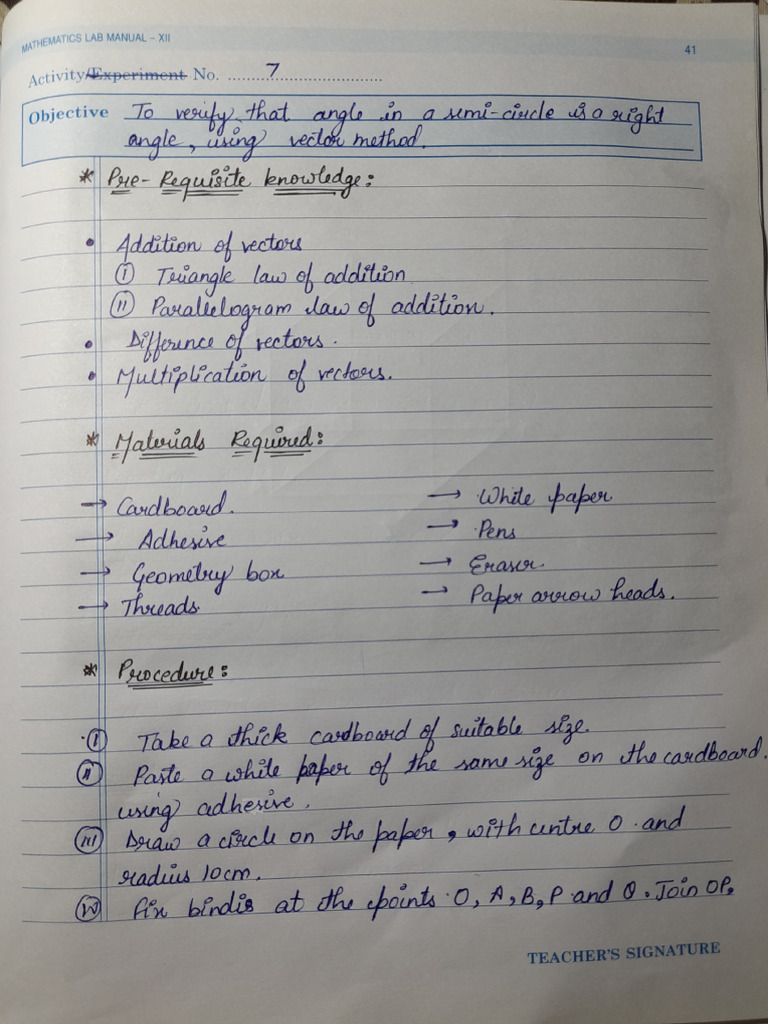 MATHEMATICS LAB MANUAL – XII
41
Activity/Experiment No. 7
Objective To verify that angle in a semi-circle is a right
angle, using vector method.
* Pre-Requisite knowledge:
• Addition of vectors
(I) Triangle law of addition
(II) Parallelogram law of addition.
• Difference of vectors.
• Multiplication of vectors.
* Materials Required:
→ Cardboard. → White paper
→ Adhesive → Pens
→ Geometry box → Eraser.
→ Threads → Paper arrow heads.
* Procedure:
(I) Take a thick cardboard of suitable size.
(II) Paste a white paper of the same size on the cardboard.
using adhesive.
(III) Draw a circle on the paper, with centre O and
radius 10cm.
(IV) fix bindis at the points O, A, B, P and Q. Join OP,
TEACHER'S SIGNATURE